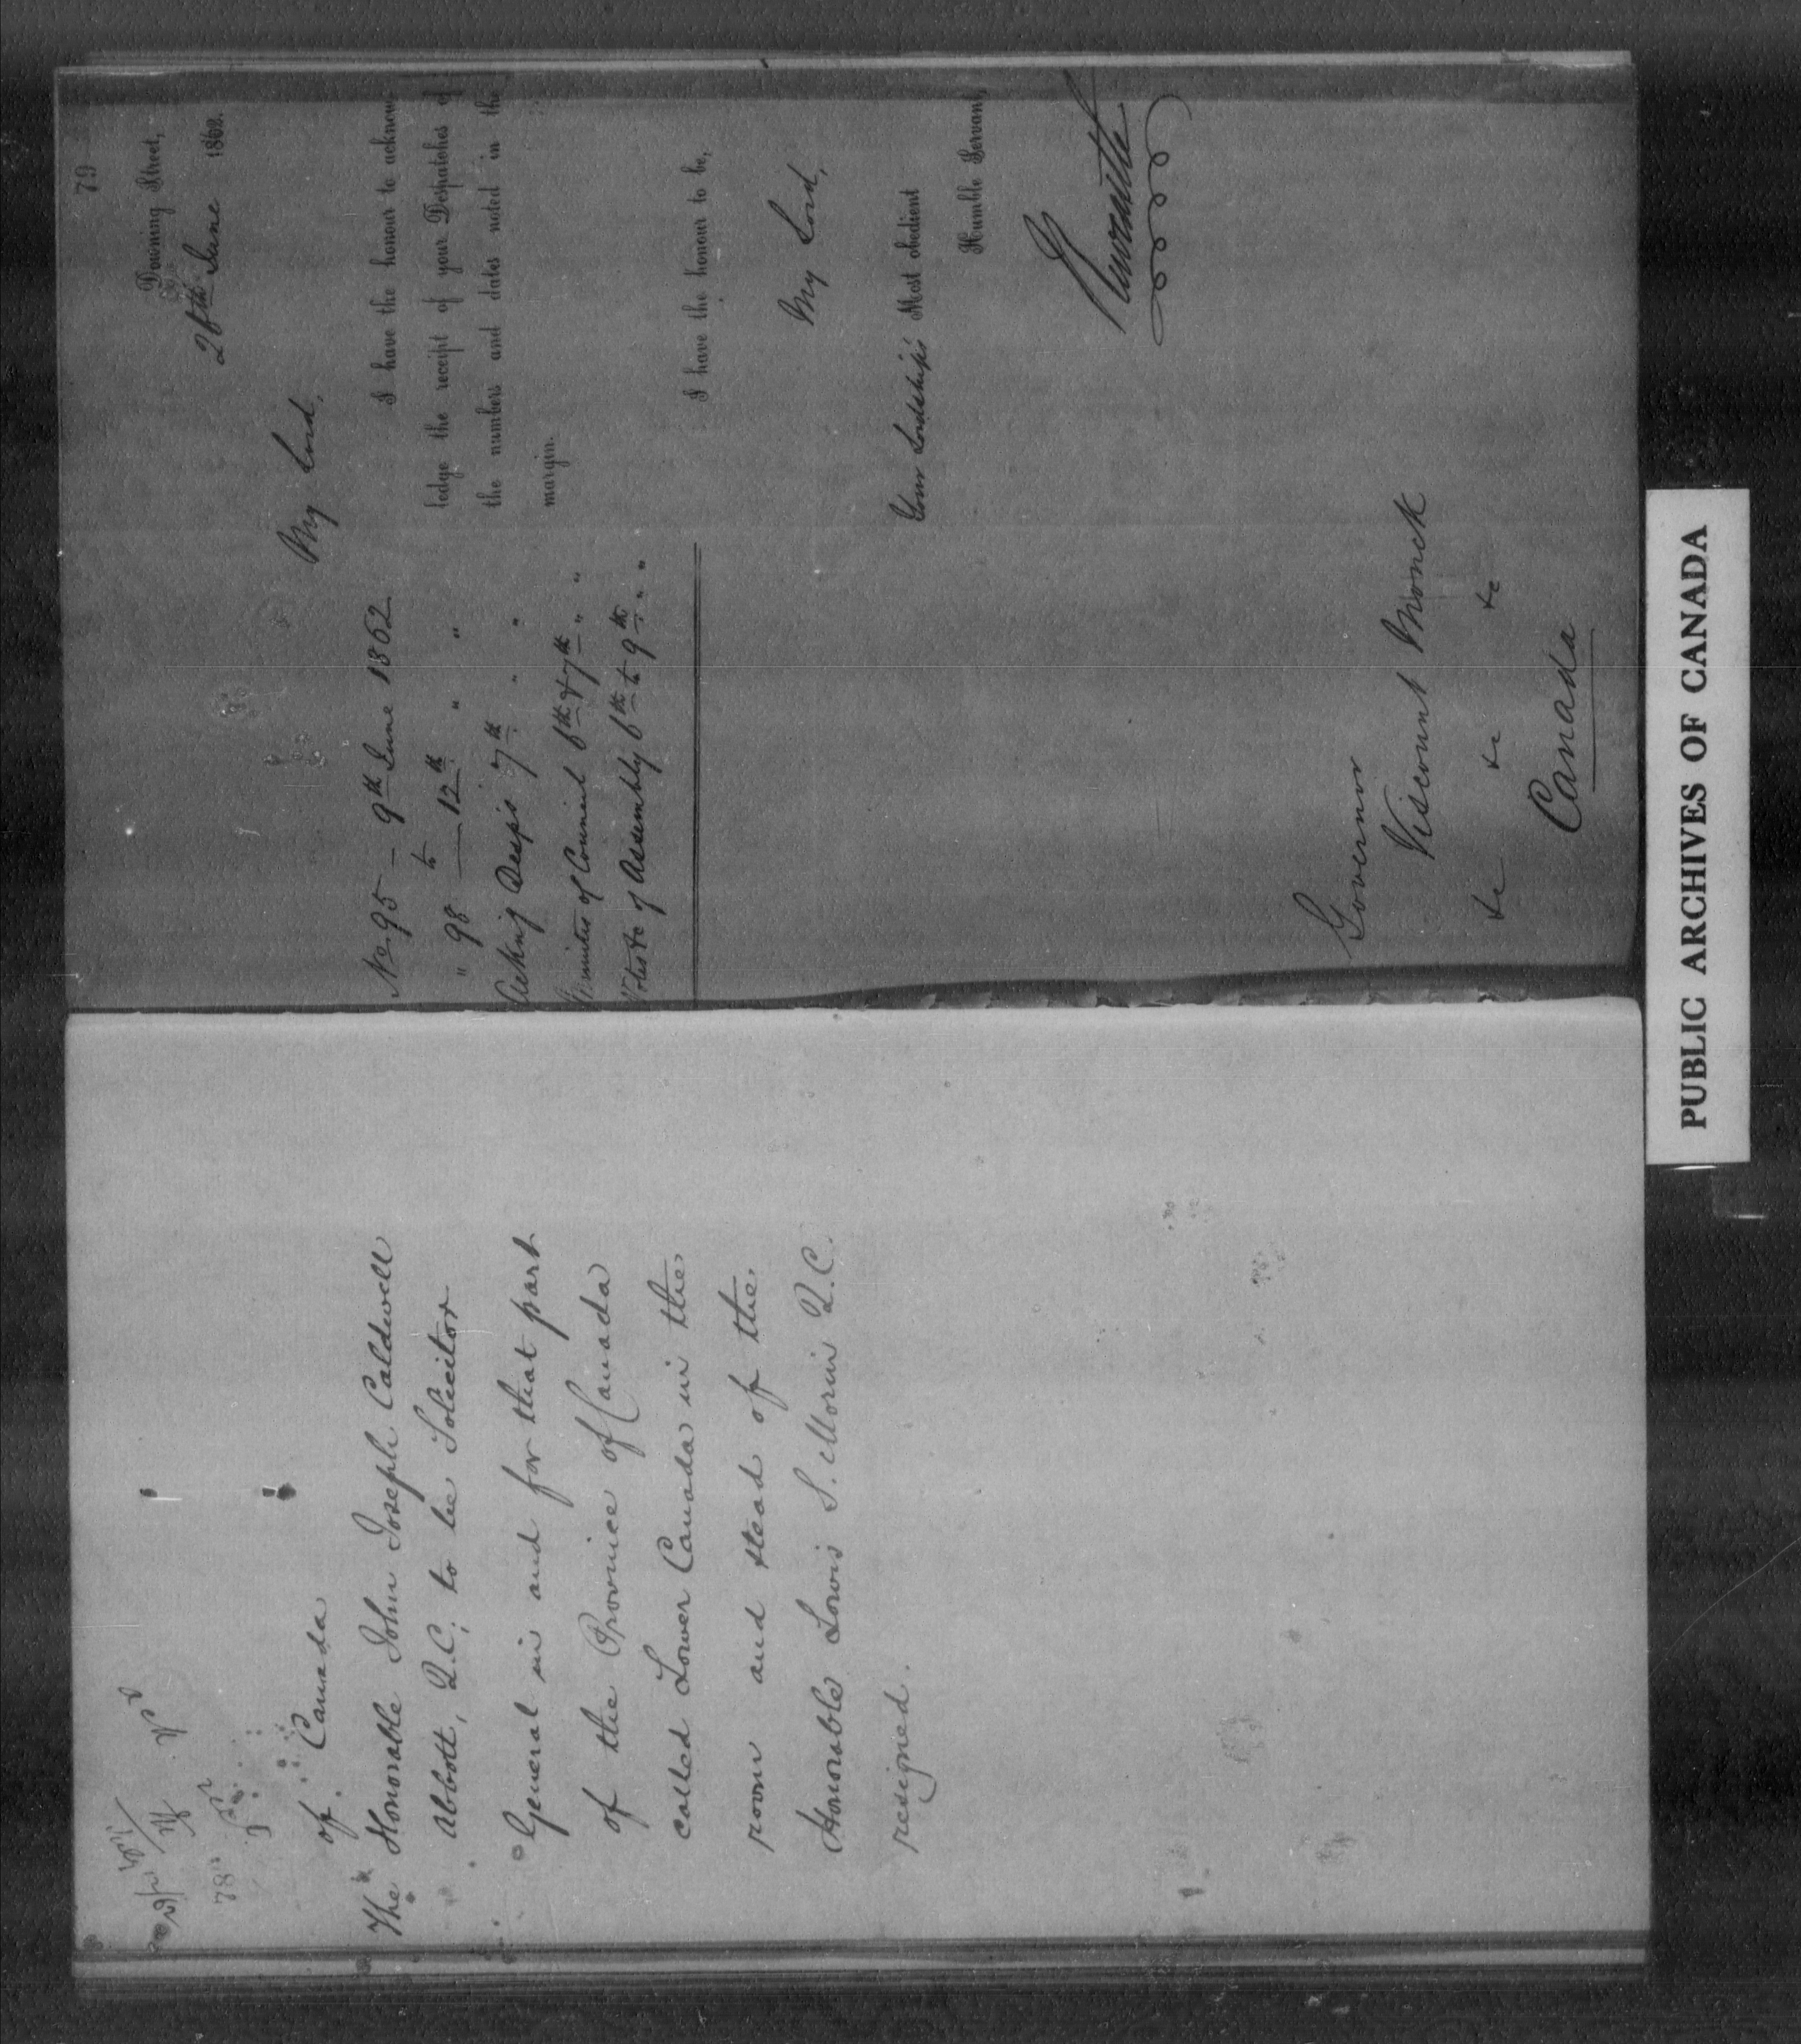 78
of Canada
The Honorable John Joseph Caldwell
Abbott, Q.C. to be Solicitor
General in and for that part
of the Province of Canada
called Lower Canada in the
room and stead of the
Honorable Louis S. Morin Q.C.
resigned.
79
Downing Street,
June 1862.
My Lord,
I have the honour to acknow-
ledge the receipt of your Despatches of
the numbers and dates noted in the
margin.
No. 95 – 9th June 1862
to
" 98 — 12th " "
Ackng Desps 7th " "
Minutes of Council 6th & 7th " "
Votes &c of Assembly 6th to 9th " "
I have the honour to be,
My Lord,
Your Lordship's Most obedient
Humble Servant,
Newcastle
Governor
Viscount Monck
&c &c &c
Canada
PUBLIC ARCHIVES OF CANADA